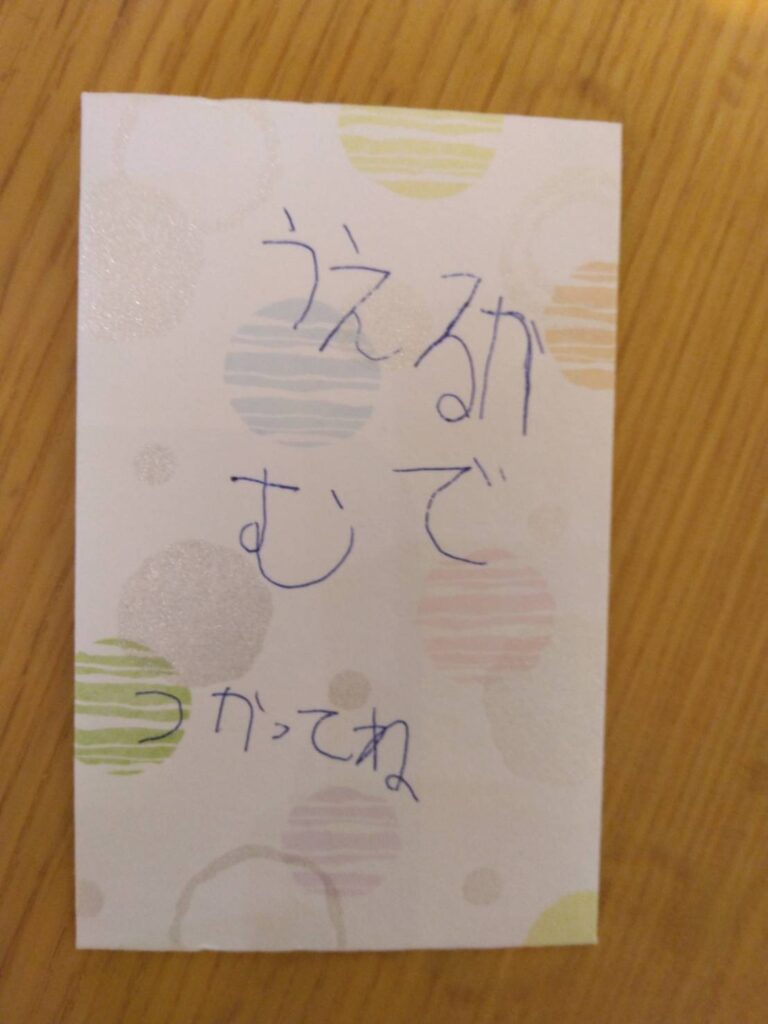 うえるか
むで
つかってね